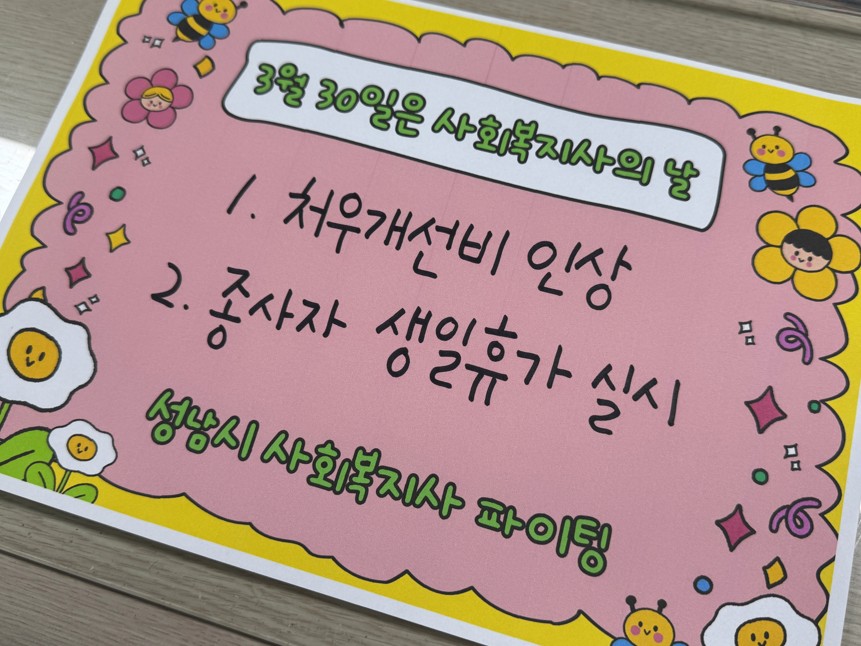 3월 30일은 사회복지사의 날
1. 처우개선비 인상
2. 종사자 생일휴가 실시
성남시 사회복지사 파이팅